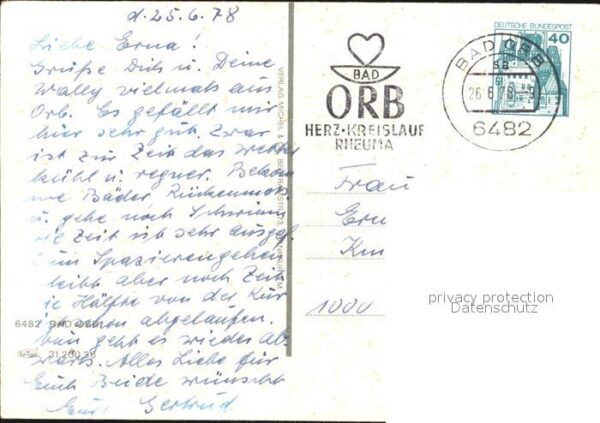 d. 25.6.78
Liebe Erna!
Grüße Dich u. Deine
Wally vielmals aus
Orb. Es gefällt mir
hier sehr gut. Zwar
ist zur Zeit das Wetter
kühl u. regner. Bekom
me Bäder, Rückenmas.
u. gehe noch Schwimm
die Zeit ist sehr ausgef.
Zum Spazierengehen
bleibt aber noch Zeit
die Hälfte von der Kur
ist schon abgelaufen.
geht es wieder ab
wärts. Alles Liebe für
Euch Beide wünscht
Gertrud
6482 BAD ORB
31 200 35
VERLAG MICHEL &
BAD
ORB
HERZ-KREISLAUF
RHEUMA
BAD ORB
26.6.78
6482
DEUTSCHE BUNDESPOST
40
Frau
Ern
Km
1000
privacy protection
Datenschutz